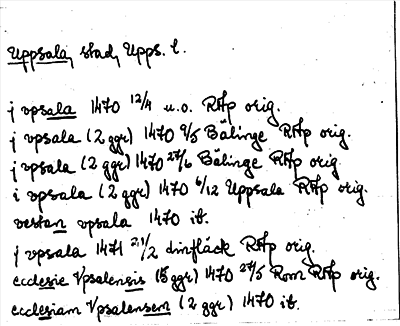 Uppsala, stad, Upps. l.
j vpsala 1470 12/4 u.o. RAp orig.
j vpsala (2 ggr) 1470 9/5 Bälinge RAp orig.
j vpsala (2 ggr) 1470 27/6 Bälinge RAp orig
i vpsala (2 ggr) 1470 6/12 Uppsala RAp orig.
vestan vpsala 1470 ib.
j vpsala 1471 21/2 RAp orig.
ecclesie Vpsalensis (5 ggr) 1470 27/5 Rom RAp orig.
ecclesiam Vpsalensem (2 ggr) 1470 ib.